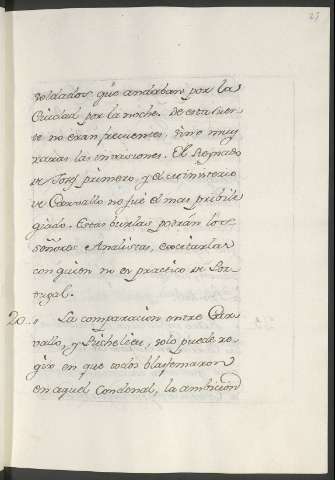 27
soldados, que andaban por la
Ciudad por la noche. De esta suer-
te no eran frecuentes, sino muy
raras las invasiones. El Reynado
de Josef primero, y el ministerio
de Carvallo no fué el mas pribile-
giado. Estas burlas podrán los
señores Analistas, escritarlas
con quien no es practico de Por-
tugal.
20. La comparacion entre Car-
vallo, y Richelieu, solo puede re-
gir en que todos blasfemaron
en aquel Cardenal, la ambicion